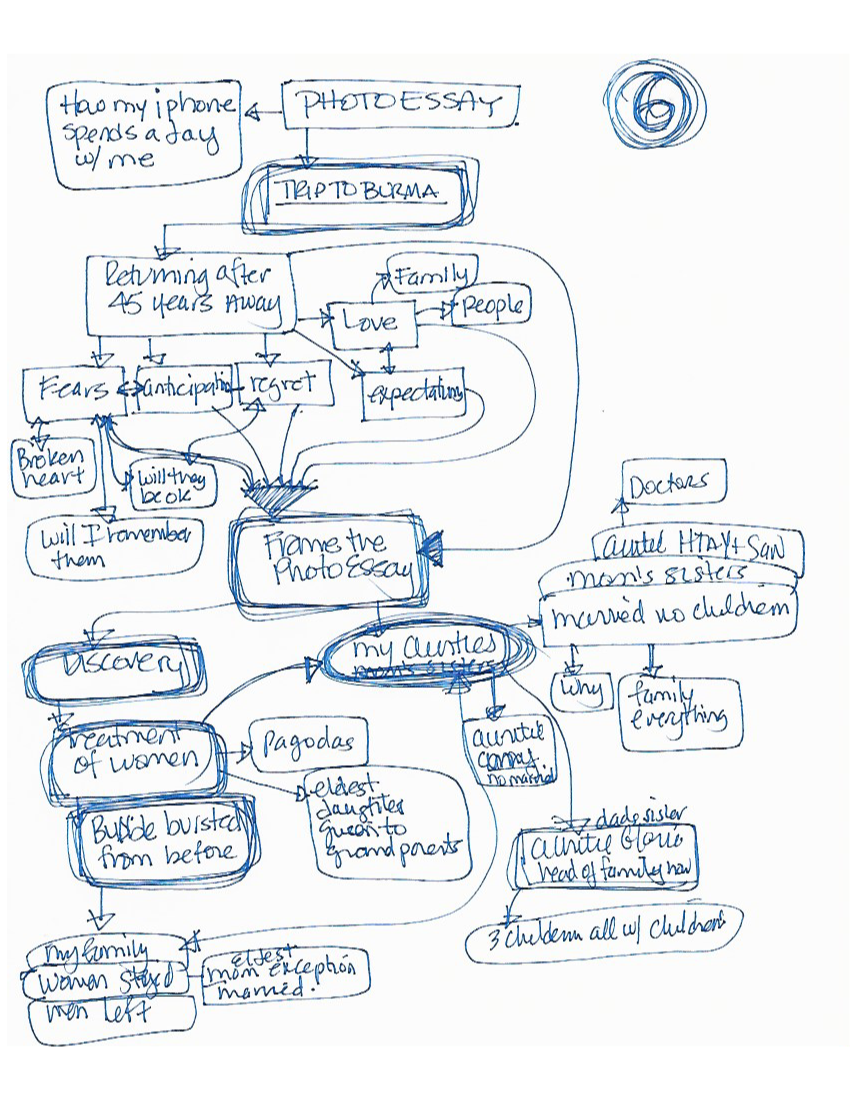 6
PHOTO ESSAY
How my iphone
spends a day
w/ me
TRIP TO BURMA
Returning after
45 years Away
Family
People
Love
Fears
anticipation
regret
expectations
Broken
heart
will they
be ok
will I remember
them
Frame the
Photo Essay
Doctors
auntie HTAY + SAW
mom's sisters
married no children
why
family
everything
my aunties
mom's sisters
Discovery
Treatment
of women
Pagodas
eldest
daughter
given to
grandparents
Bubble bursted
from before
auntie
no married
dads sister
auntie Gloria
head of family now
3 children all w/ children
my family
women stayed
men left
eldest
mom exception
married.